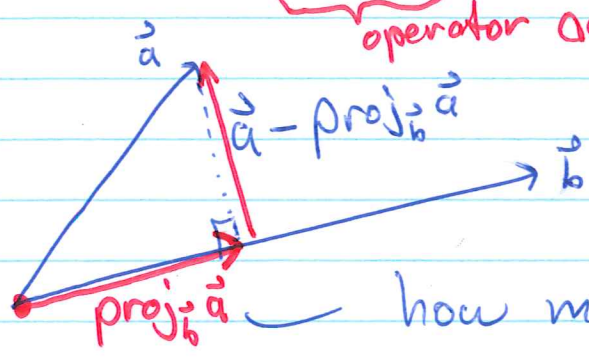 operator
a⃗
a⃗ - proj_b⃗ a⃗
b⃗
proj_b⃗ a⃗
how